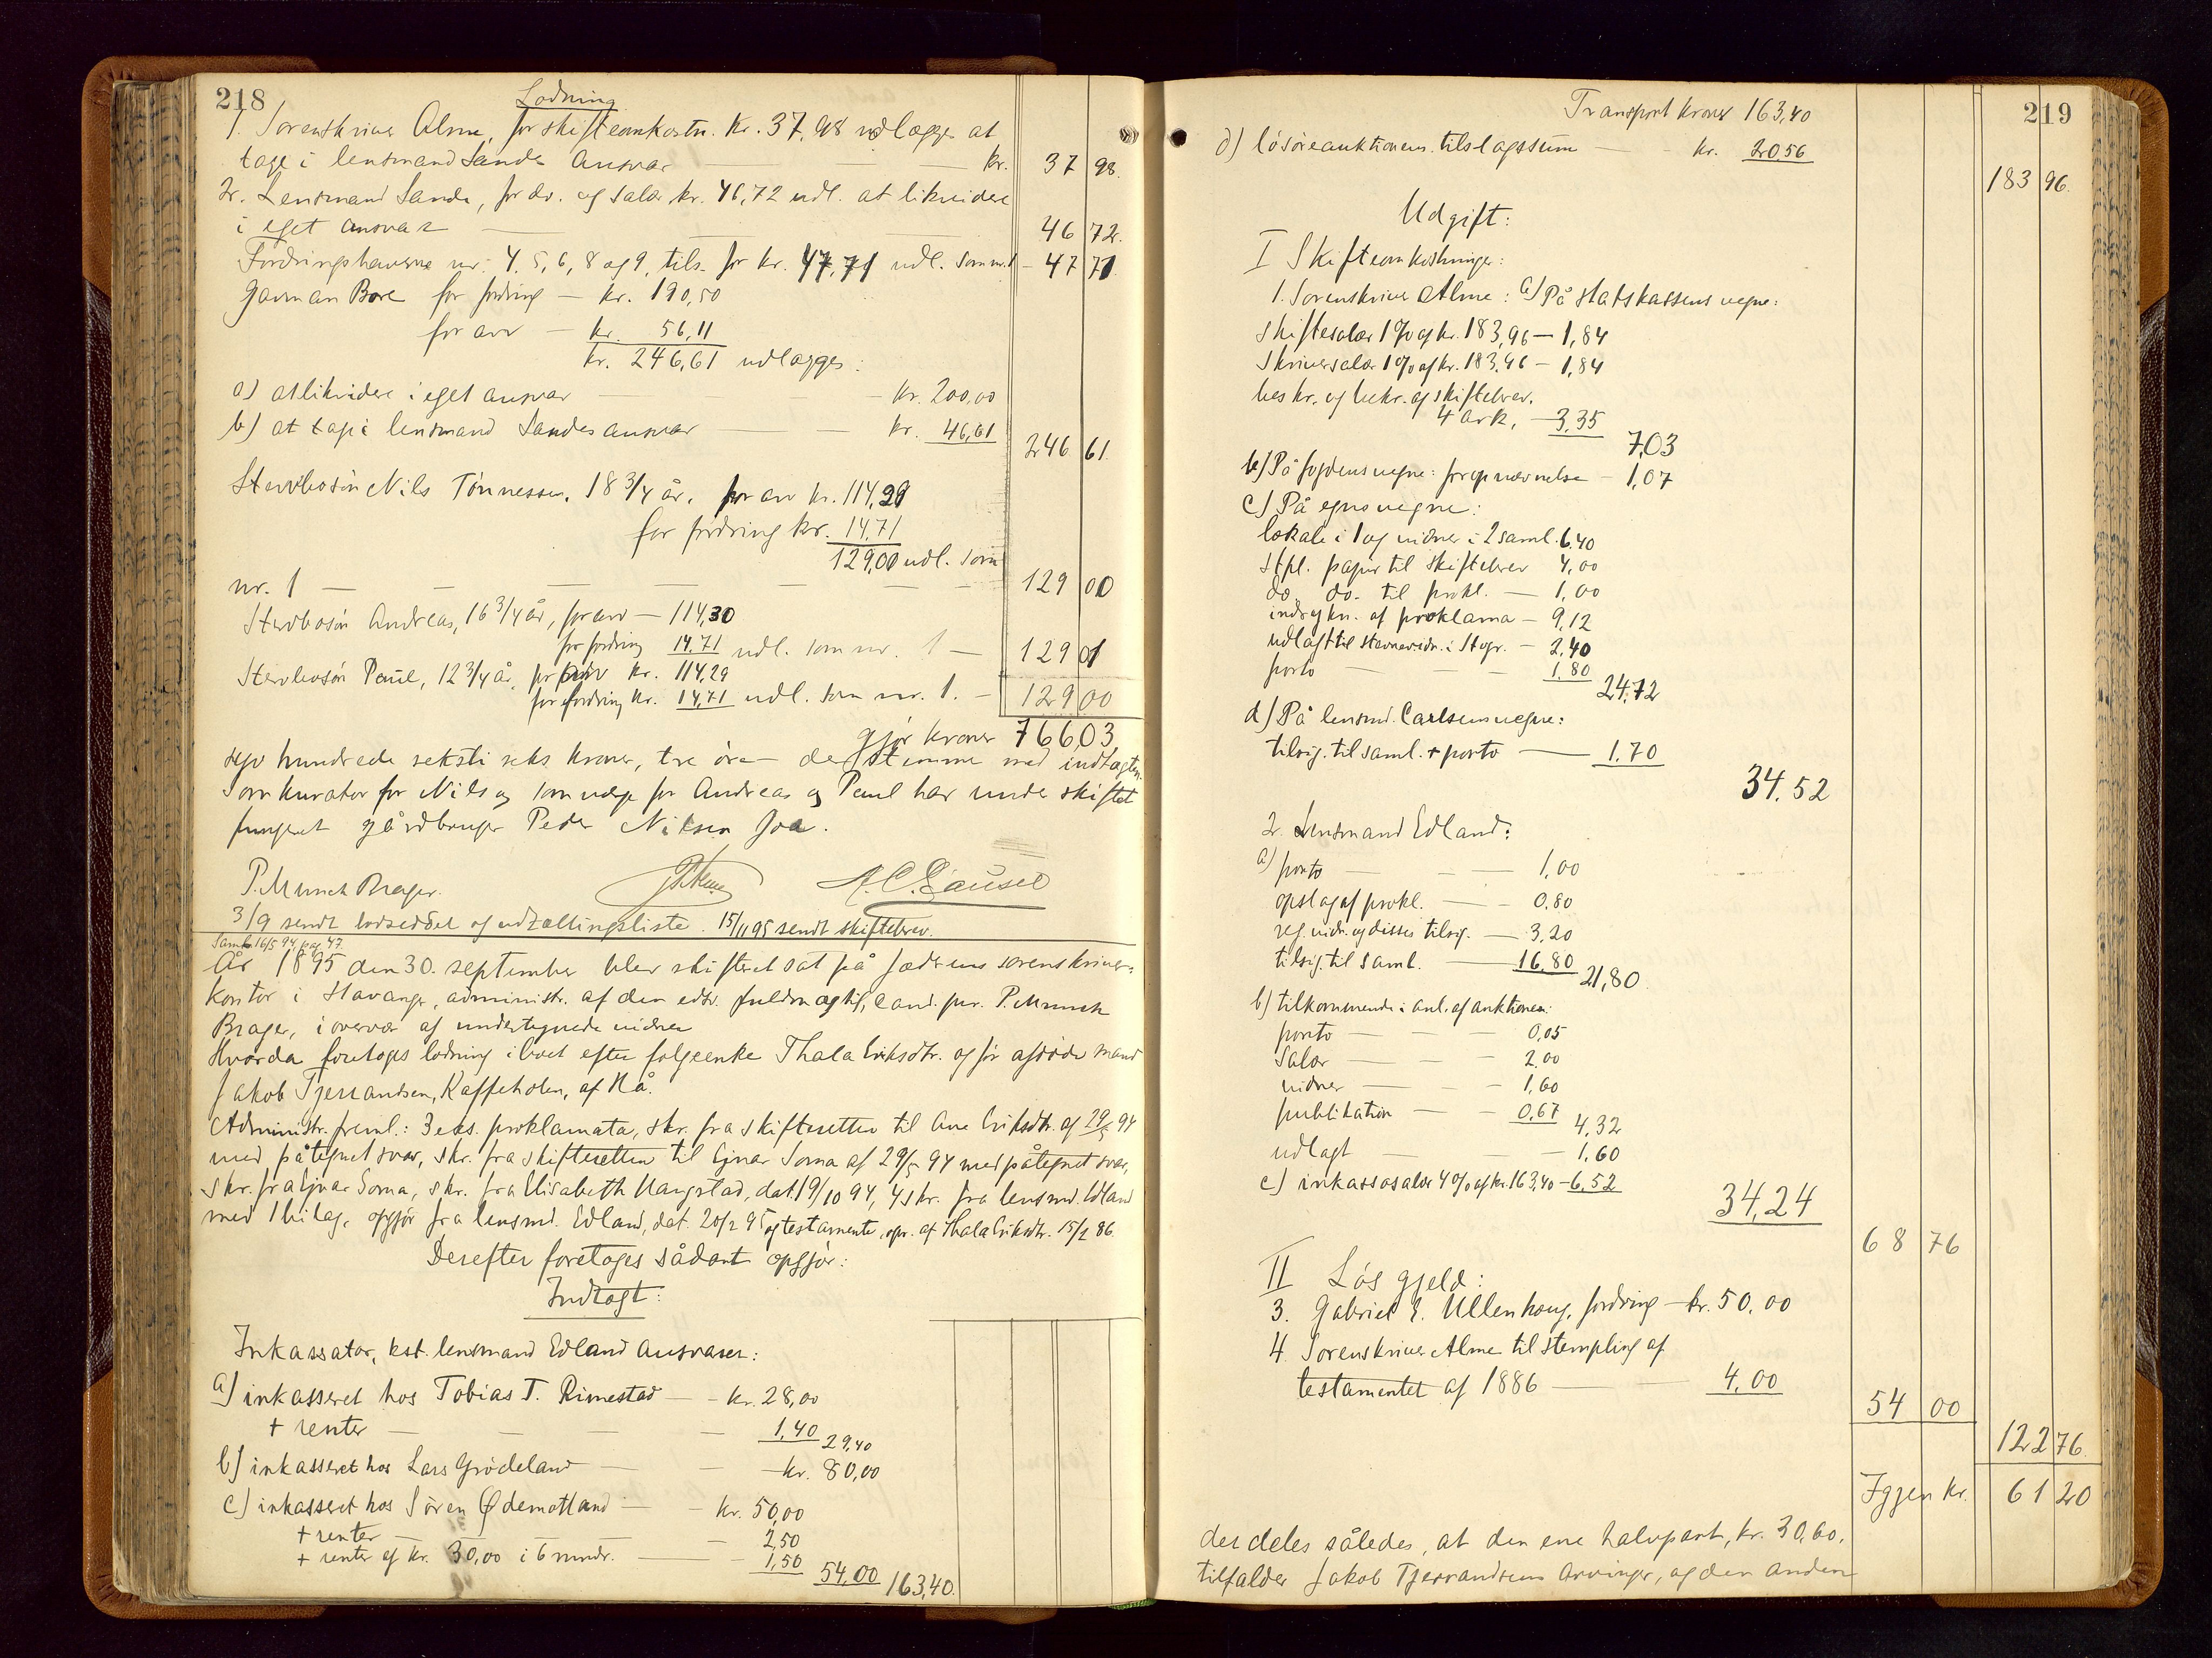 218
Lodning
1. Sorenskriver Alme, for skifteomkostn. kr. 37,98 udlægges at
tage i lensmand Sandes Ansvar — kr. 37 98.
2. Lensmand Sande, for do. og salær kr. 46,72 udl. at likvidere
i eget ansvar — 46 72.
Fordringshaverne nr. 4, 5, 6, 8 og 9, tils. for kr. 47,71 udl. som nr. 1 — 47 71
Bore for fordring — kr. 190,50
for arv — kr. 56,11
kr. 246,61 udlægges:
a) at likvidere i eget ansvar — kr. 200,00
b) at tage i lensmand Sandes ansvar — kr. 46,61
246 61.
Stervbosön Nils Tönnessen, 18 3/4 år, for arv kr. 114,29
for fordring kr. 14,71
129,00 udl. som
nr. 1 — 129 00
Stervbosön Andreas, 16 3/4 år, for arv — 114,30
for fordring 14,71 udl. som nr. 1 — 129 01
Stervbosön Paul, 12 3/4 år, for arv kr. 114,29
for fordring kr. 14,71 udl. som nr. 1. — 129 00
gjör kroner 766,03
syv hundrede seksti seks kroner, tre öre — der stemmer med indtægten.
Som kurator for Nils og som værge for Andreas og Paul har under skiftet
fungeret gårdbruger Peder Nilsen Joa.
P. Munch Brager.
A. C. Gausel
3/9 sendt lodseddel og udtællingsliste. 15/11 95 sendt skiftebrev.
Saml. 16/5 94, pag. 47.
År 1895 den 30. september blev skifteret sat på Jæderens sorenskriver-
kontor i Stavanger, administr. af den edsv. fuldmægtig, cand. jur. P. Munch
Brager, i overvær af undertegnede vidner
Hvorda foretoges lodning i boet efter folgeenke Thala Eriksdtr. og för afdöde mand
Jakob Tjerrandsen, Kaffeholen, af Hå.
Administr. freml.: 3 eks. proklamata, skr. fra skifteretten til Ane Eriksdtr. af 29/5 94
med påtegnet svar, skr. fra skifteretten til Ejvar Soma af 29/5 94 med påtegnet svar,
skr. fra Ejvar Soma, skr. fra Elisabeth Haugstad, dat. 19/10 94, 4 skr. fra lensmd. Edland
med 1 bilag, opgjör fra lensmd. Edland, dat. 20/2 95 og testamente, opr. af Thala Eriksdtr. 15/2 86.
Derefter foretoges sådant opgjör:
Indtægt:
Inkassator, kst. lensmand Edland Ansvaren:
a) inkasseret hos Tobias T. Rimestad — kr. 28,00
+ renter — 1,40 29,40
b) inkasseret hos Lars Grödeland — kr. 80,00
c) inkasseret hos Sören Ödemotland — kr. 50,00
+ renter — 2,50
+ renter af kr. 30,00 i 6 mndr. — 1,50 54,00 163,40.
219
Transport kroner 163,40
d) lösöreauktionens tilslagssum — kr. 20,56
183 96.
Udgift:
I Skifteomkostninger:
1. Sorenskriver Alme: a) På statskassens vegne:
skiftesalær 1 % af kr. 183,96 — 1,84
skriversalær 1 % af kr. 183,96 — 1,84
beskr. og bekr. af skiftebrev.
4 ark, — 3,35
7,03
b) På fogdens vegne: for opnævnelse — 1,07
c) På egne vegne:
lokale i 1 og vidner i 2 saml. 6,40
stpl. papir til skiftebrev 4,00
do. do. til prokl. — 1,00
indrykn. af proklama — 9,12
udlagt til stævnevidn. i Stvgr. — 2,40
porto — 1,80
24,72
d) På lensmd. Carlsens vegne:
tilsig. til saml. + porto — 1.70
34.52
2. Lensmand Edland:
a) porto — 1,00
opslag af prokl. — 0.80
reg. vidn. og disses tilsig. — 3,20
tilsig. til saml. — 16,80 21,80
b) tilkommende i anl. af auktionen:
porto — 0,05
Salær — 2,00
vidner — 1,60
publikation — 0,67 4,32
udlagt — 1,60
c) inkassosalær 4 % af kr. 163,40 — 6,52
34,24
68 76
II Lös gjeld:
3. Gabriel E. Ullenhaug, fordring — kr. 50,00
4. Sorenskriver Alme til stempling af
testamentet af 1886 — 4,00
54 00
122 76.
Igjen kr. 61 20
der deles således, at den ene halvpart, kr. 30,60,
tilfalder Jakob Tjerrandsens Arvinger, og den anden